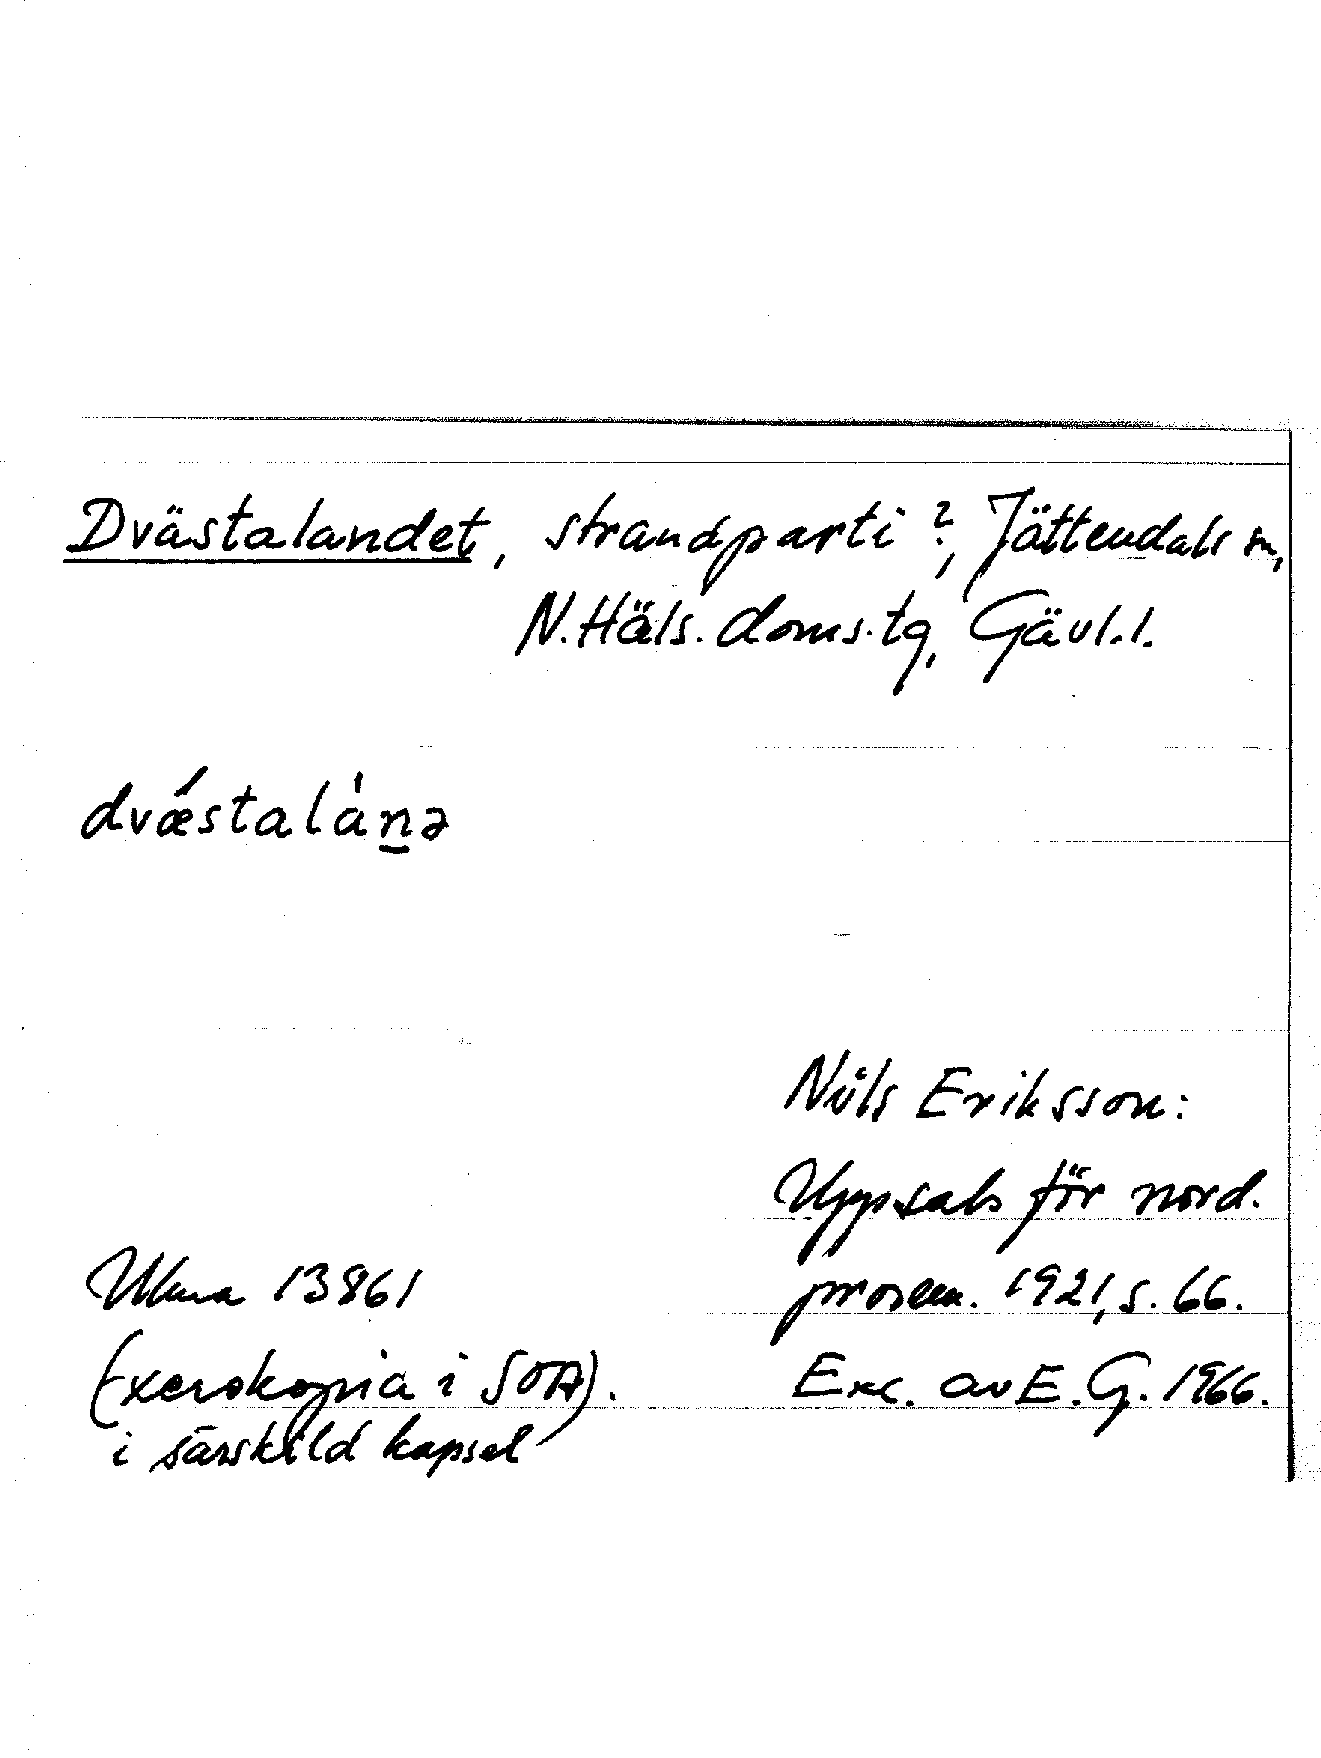 Dvästalandet, strandparti?, Jättendals sn,
N. Häls. doms.tg, Gävl.l.
dvǽstalànə
Nils Eriksson:
Uppsats för nord.
prosem. 1921, s. 66.
Exc. av E.G. 1966.
Ulma 13861
(xerokopia i SOA).
i särskild kapsel